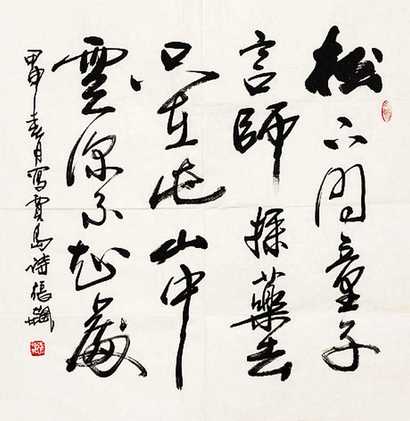 松下問童子
言師採藥去
只在此山中
雲深不知處
甲申春月寫賈島詩張